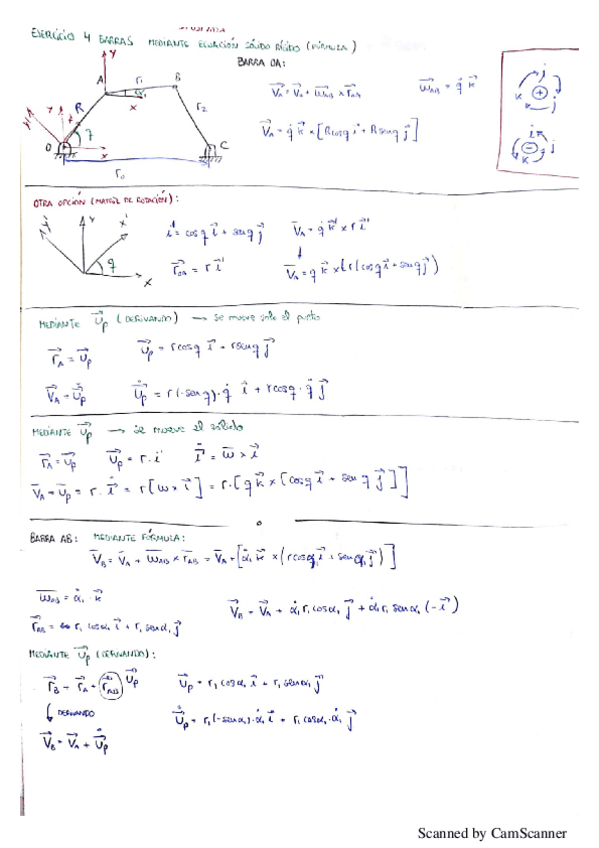 EJERCICIO 4 BARRAS MEDIANTE ECUACIÓN SÓLIDO RÍGIDO (FÓRMULA)
BARRA OA:
Y
A
r₁
B
α₁
X
R
r₂
q
O
X
C
r₀
V⃗A = V⃗o + ω⃗OA × r⃗OA
ω⃗AB = q̇ k⃗
V⃗A = q̇ k⃗ × [Rcosq i⃗ + Rsenq j⃗]
i
j
k
+
i
j
k
-
OTRA OPCIÓN (MATRIZ DE ROTACIÓN):
Y
X'
q
X
i⃗' = cosq i⃗ + senq j⃗
V⃗A = q̇ k⃗' × r i⃗'
r⃗OA = r i⃗'
V⃗A = q k⃗ × (r(cosq i⃗ + senq j⃗))
MEDIANTE U⃗p (DERIVANDO) → se mueve solo el punto
r⃗A = U⃗p
U⃗p = rcosq i⃗ + rsenq j⃗
V⃗A = U⃗̇p
U⃗̇p = r(-senq)·q̇ i⃗ + rcosq·q̇ j⃗
MEDIANTE U⃗p → se mueve el sólido
r⃗A = U⃗p
U⃗p = r·i'
i⃗̇ = ω⃗ × i⃗
V⃗A = U⃗̇p = r·i⃗̇ = r[ω × i⃗] = r·[q k⃗ × [cosq i⃗ + senq j⃗]]
BARRA AB: MEDIANTE FÓRMULA:
V⃗B = V⃗A + ω⃗AB × r⃗AB = V⃗A + [α̇₁ k⃗ × (rcosα₁ i⃗ + senα₁ j⃗)]
ω⃗AB = α̇₁ · k⃗
V⃗B = V⃗A + α̇₁r₁ cosα₁ j⃗ + α̇₁r₁ senα₁ (-i⃗)
r⃗AB = r₁ cosα₁ i⃗ + r₁ senα₁ j⃗
MEDIANTE U⃗p (DERIVANDO):
r⃗B = r⃗A + r⃗AB U⃗p
U⃗p = r₁ cosα₁ i⃗ + r₁ senα₁ j⃗
DERIVANDO
U⃗̇p = r₁(-senα₁)·α̇₁ i⃗ + r₁ cosα₁·α̇₁ j⃗
V⃗B = V⃗A + U⃗̇p
Scanned by CamScanner